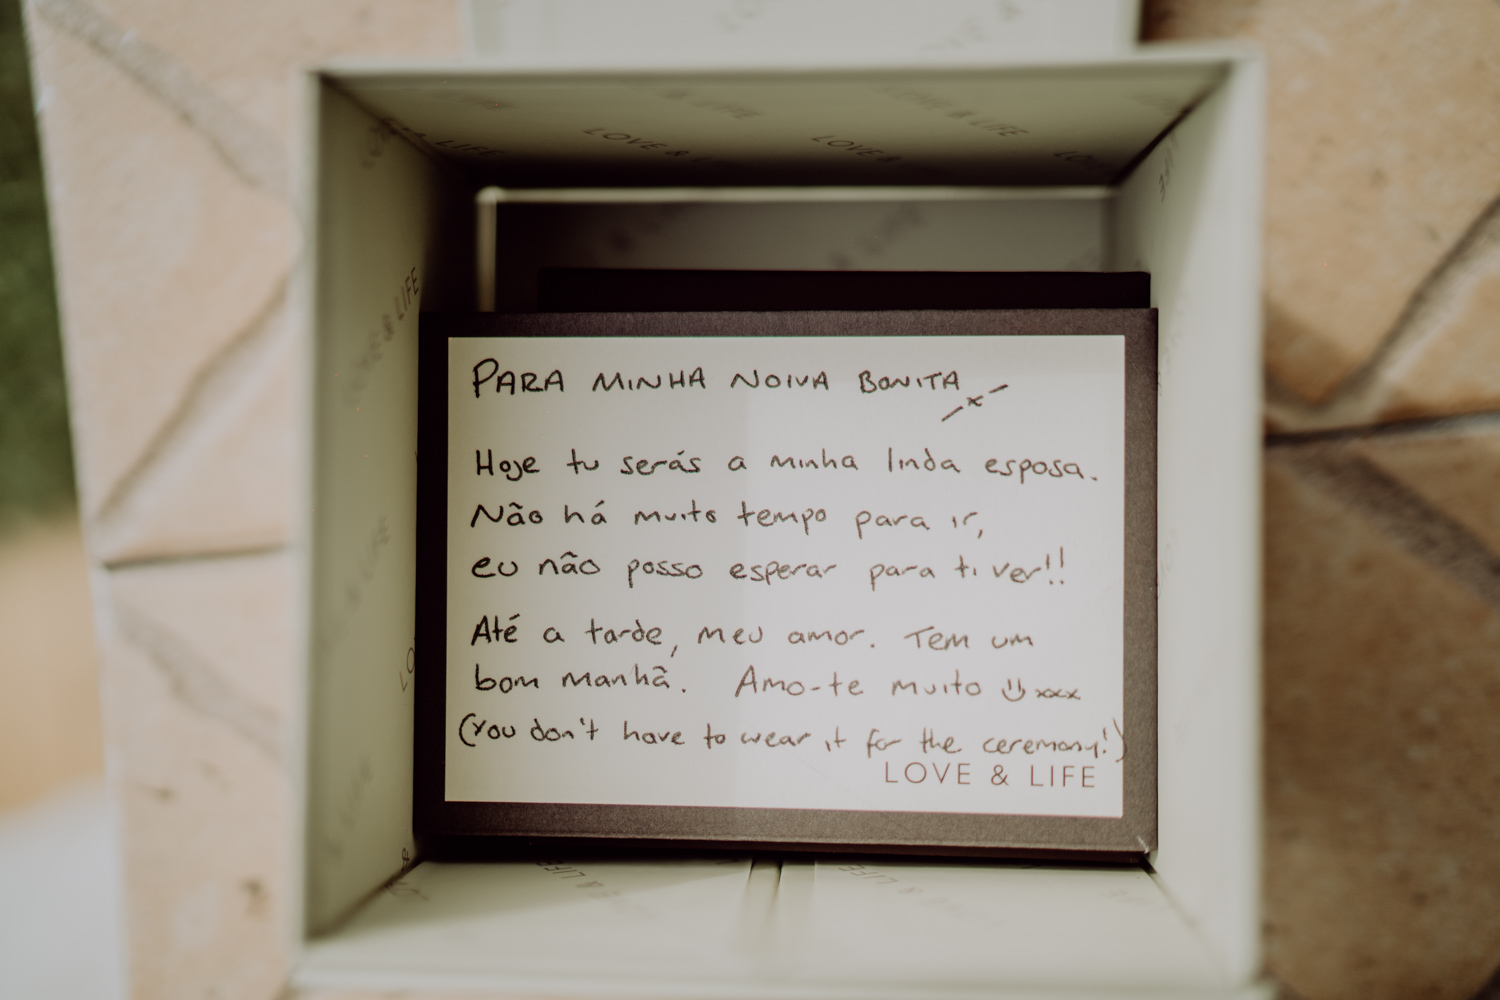 LOVE & LIFE
LOVE &
LOVE &
& LIFE
PARA MINHA NOIVA BONITA x
Hoje tu serás a minha linda esposa.
Não há muito tempo para ir,
eu não posso esperar para ti ver!!
Até a tarde, meu amor. Tem um
bom manhã. Amo-te muito :) xxx
(You don't have to wear it for the ceremony!)
LOVE & LIFE